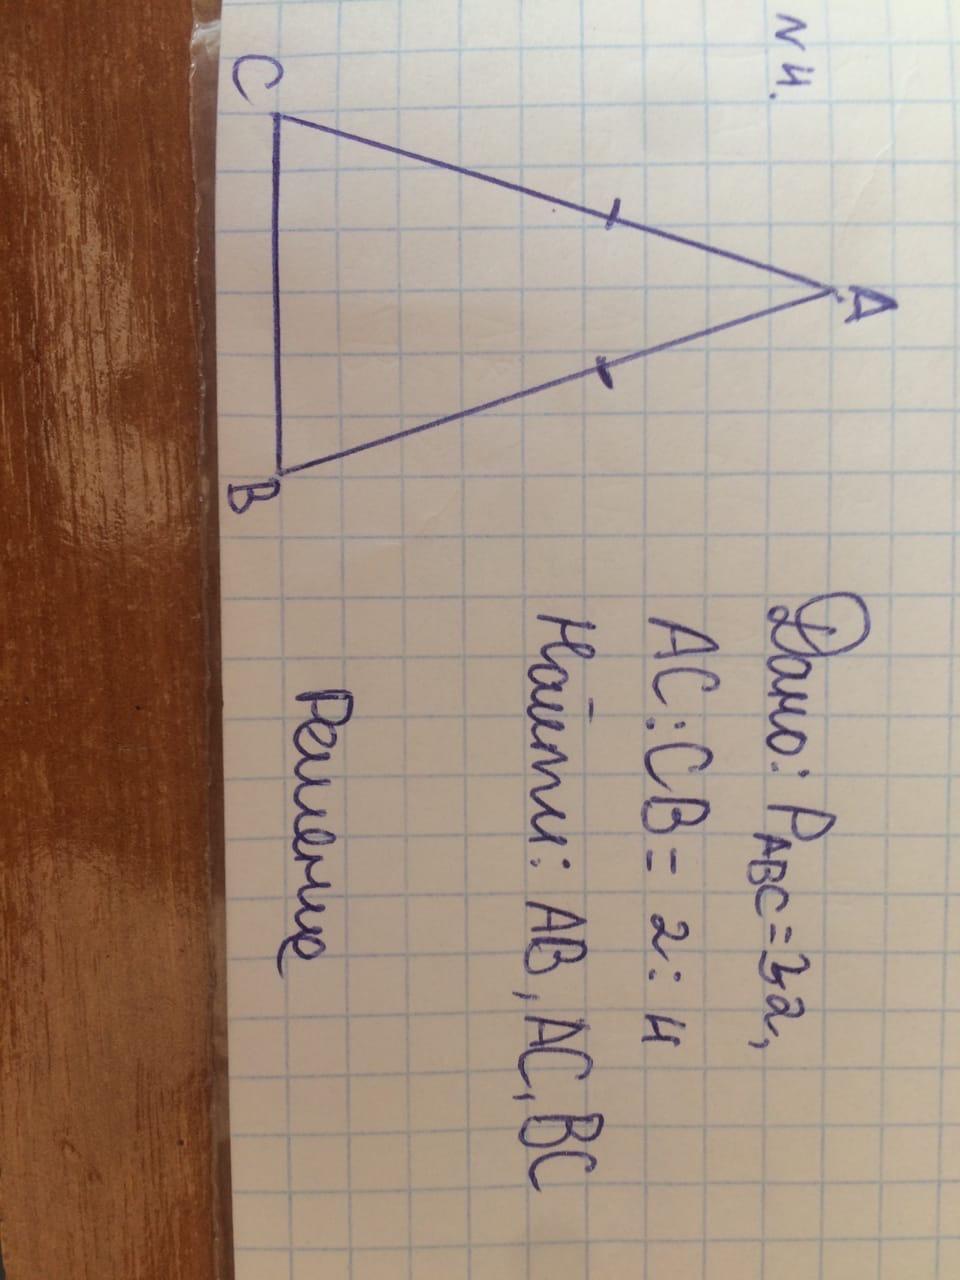 N 4.
A
C
B
Дано: P_ABC = 32,
AC : CB = 2 : 4
Найти: AB, AC, BC
Решение